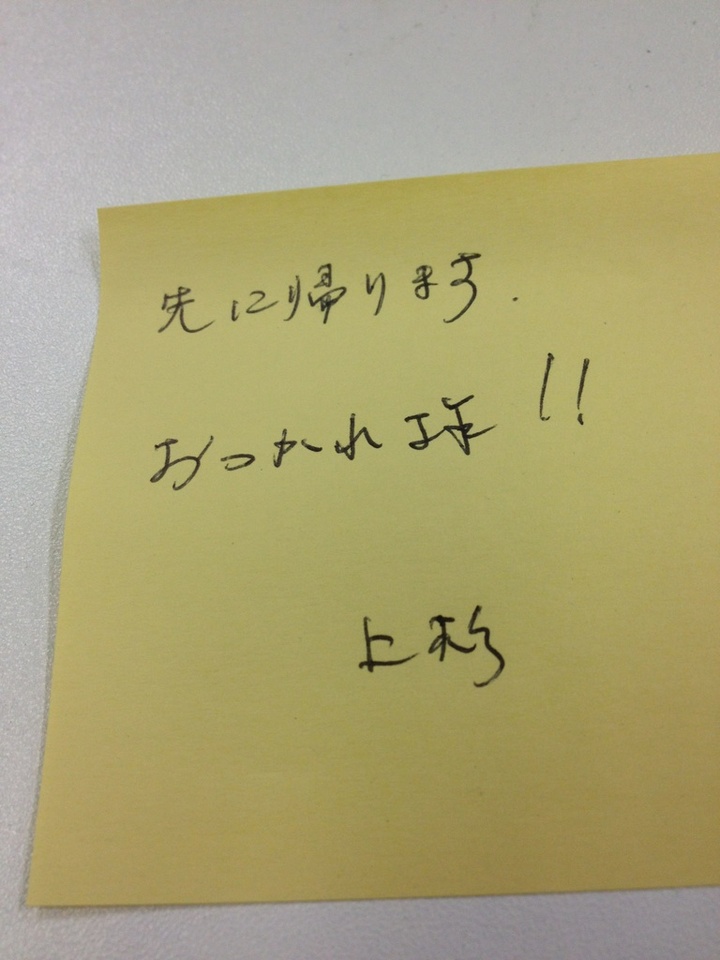 先に帰ります.
おつかれ様!!
上杉